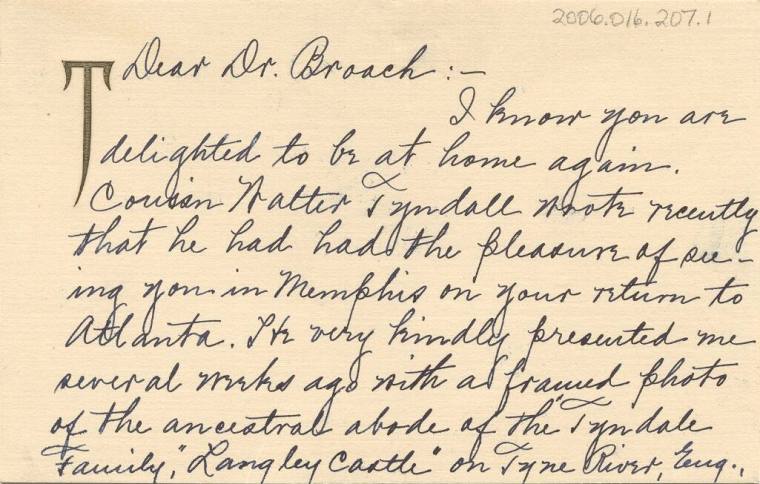 2006.016.207.1
T
Dear Dr. Broach :-
I know you are
delighted to be at home again.
Cousin Walter Tyndall wrote recently
that he had had the pleasure of see-
ing you in Memphis on your return to
Atlanta. He very kindly presented me
several weeks ago with a framed photo
of the ancestral abode of the "Tyndale
Family," "Langley Castle" on Tyne River, Eng.,